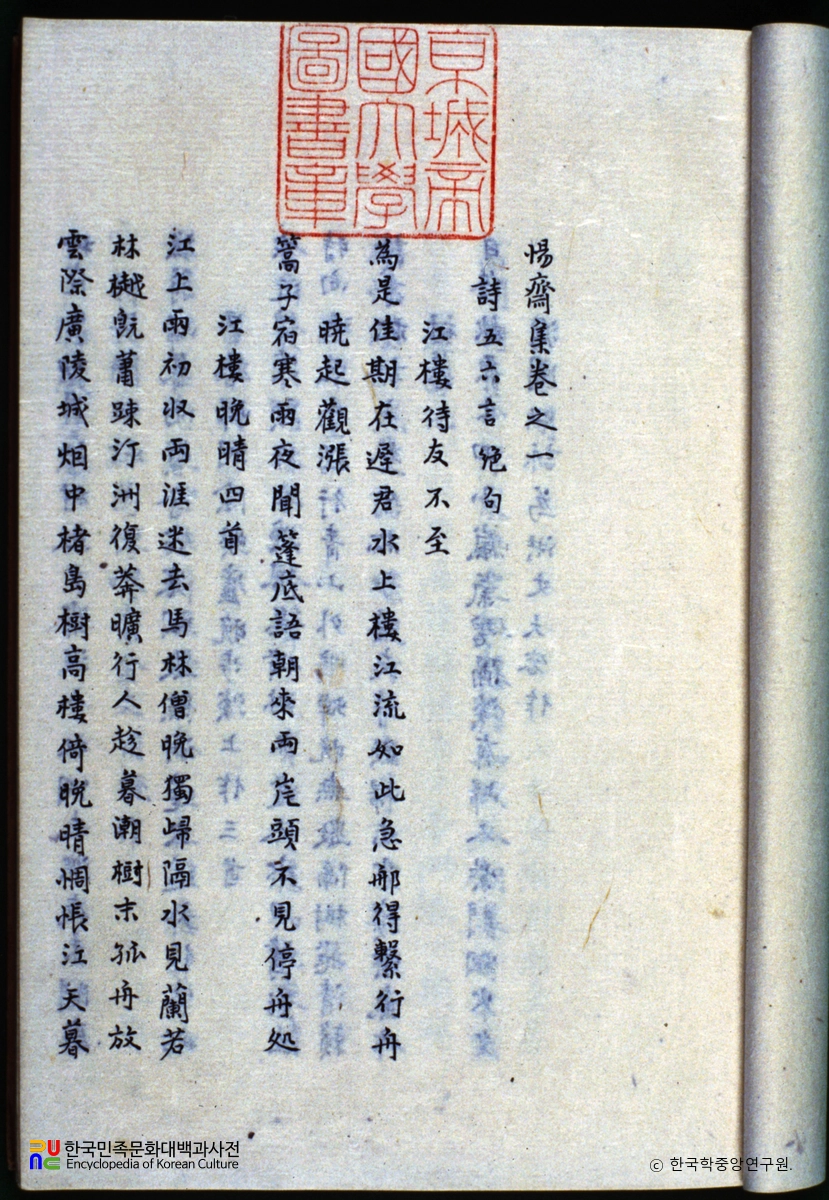 惕齋集卷之一
詩五六言絶句
江樓待友不至
為是佳期在遲君水上樓江流如此急那得繫行舟
曉起觀漲
篙子宿寒雨夜聞蓬底語朝來両岸頭不見停舟処
江樓晩晴四首
江上雨初収両涯迷去馬林僧晩獨歸隔水見蘭若
林樾旣蕭踈汀洲復莽曠行人趁暮潮樹末孤舟放
雲際廣陵城烟中楮島樹高樓倚晩晴惆悵江天暮
京城帝
國大學
圖書章
한국민족문화대백과사전
Encyclopedia of Korean Culture
© 한국학중앙연구원.